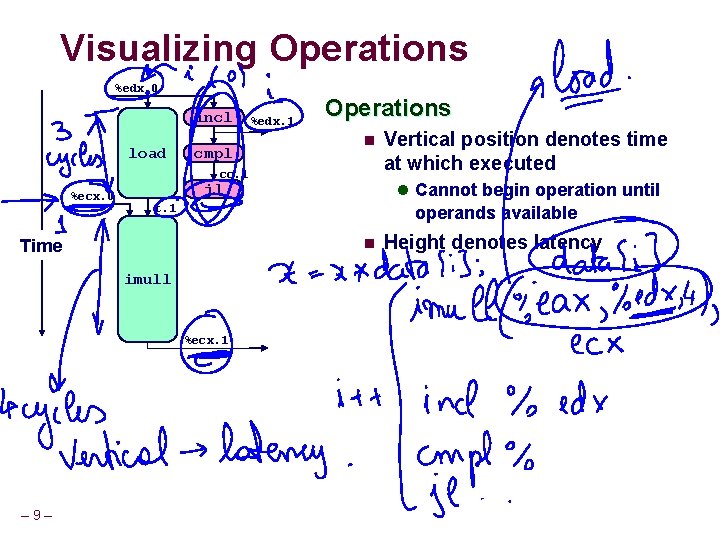 Visualizing Operations
%edx.0
i (0)
i
load.
incl
%edx.1
Operations
3
cycles
load
cmpl
cc.1
jl
%ecx.0
t.1
1
Time
Vertical position denotes time
at which executed
Cannot begin operation until
operands available
Height denotes latency
data[i]
x = x * data[i];
imull
imull (%eax, %edx, 4),
ecx
%ecx.1
4 cycles
Vertical → latency.
i++
incl % edx
cmpl %
jl ..
– 9 –